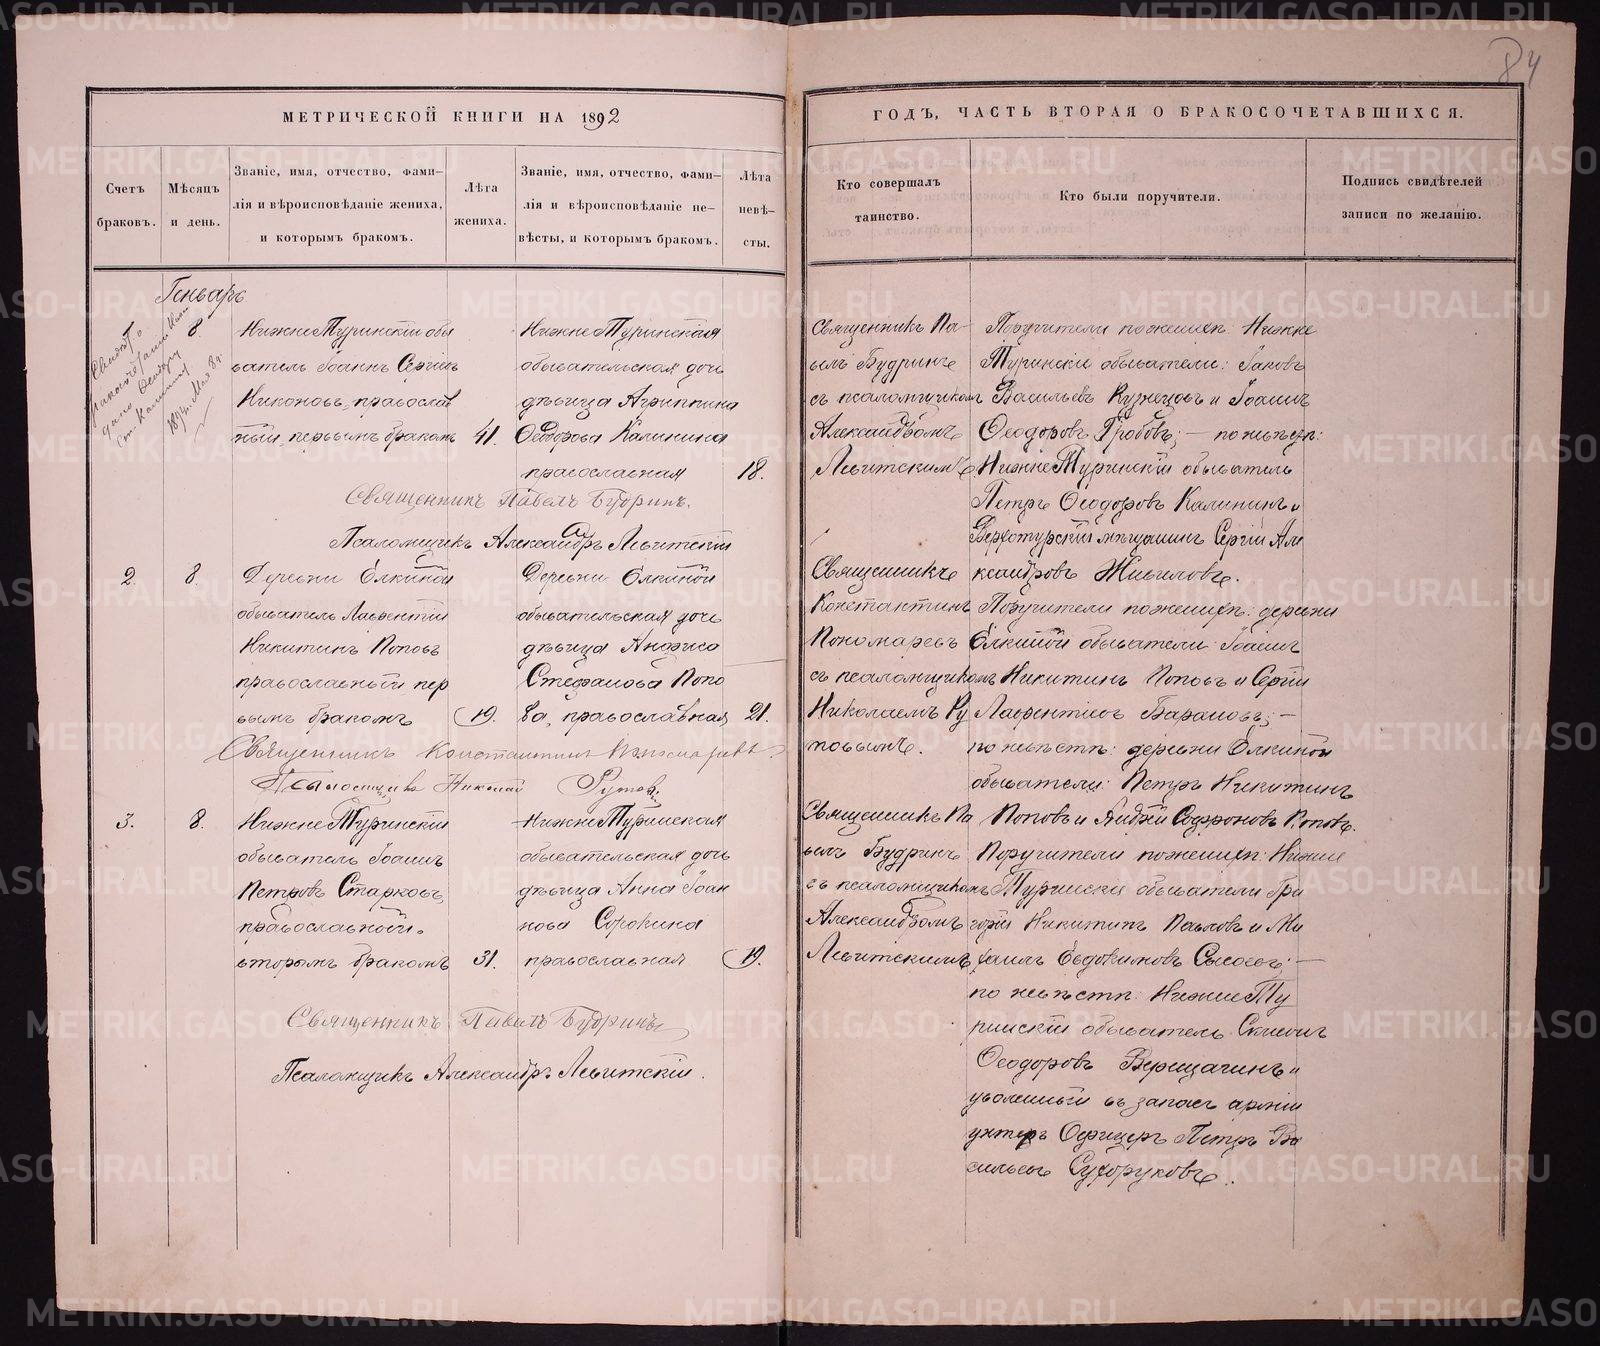 84
МЕТРИЧЕСКОЙ КНИГИ НА 1892
Счетъ
браковъ.
Мѣсяцъ
и день.
Званіе, имя, отчество, фами-
лія и вѣроисповѣданіе жениха,
и которымъ бракомъ.
Лѣта
жениха.
Званіе, имя, отчество, фами-
лія и вѣроисповѣданіе не-
вѣсты, и которымъ бракомъ.
Лѣта
невѣ-
сты.
Генварь
8.
НижнеТуринскій обы
ватель Іоаннъ Сергіевъ
Никоновъ, православ
ный, первымъ бракомъ
41.
НижнеТуринская
обывательская дочь
дѣвица Агриппина
Ѳеодорова Калинина
православная
18.
Священникъ Павелъ Будринъ.
Псаломщикъ Александръ Левитскій
2.
8.
Деревни Елкиной
обыватель Лаврентій
Никитинъ Поповъ
православный пер
вымъ бракомъ
19.
Деревни Елкиной
обывательская дочь
дѣвица Анфиса
Стефанова Попо
ва, православная
21.
Священникъ Константинъ Пономаревъ
Псаломщикъ Николай Рутовъ
3.
8.
НижнеТуринскій
обыватель Іоаннъ
Петровъ Старковъ,
православный.
вторымъ бракомъ
31.
НижнеТуринская
обывательская дочь
дѣвица Анна Іоан
нова Сорокина
православная
19.
Священникъ Павелъ Будринъ
Псаломщикъ Александръ Левитскій.
ГОДЪ, ЧАСТЬ ВТОРАЯ О БРАКОСОЧЕТАВШИХСЯ.
Кто совершалъ
таинство.
Кто были поручители.
Подпись свидѣтелей
записи по желанію.
Священникъ Па-
велъ Будринъ
съ псаломщикомъ
Александромъ
Левитскимъ
Поручители по женихѣ: Нижне
Турински обыватели: Іаковъ
Васильевъ Кузнецовъ и Іоаннъ
Ѳеодоровъ Гробовъ; — по невѣстѣ:
НижнеТуринскій обыватель
Петръ Ѳеодоровъ Калининъ и
Верхотурскій мѣщанинъ Сергій Але
ксандровъ Живиловъ.
Священникъ
Константинъ
Пономаревъ
съ псаломщикомъ
Николаемъ Ру
товымъ.
Поручители по женихѣ: деревни
Елкиной обыватели: Іоаннъ
Никитинъ Поповъ и Сергій
Лаврентіевъ Барановъ; —
по невѣстѣ: деревни Елкиной
обыватели: Петръ Никитинъ
Поповъ и Андрей Софроновъ Поповъ.
Священникъ Па
велъ Будринъ
съ псаломщикомъ
Александромъ
Левитскимъ
Поручители по женихѣ: Нижне
Турински обыватели Гри
горій Никитинъ Павловъ и Ми
хаилъ Евдокимовъ Сысоевъ; —
по невѣстѣ: НижнеТу
ринскій обыватель
Ѳеодоровъ Верещагинъ и
уволенный въ запасъ арміи
унтеръ Офицеръ Петръ Ва
сильевъ Сухоруковъ.
METRIKI.GASO-URAL.RU